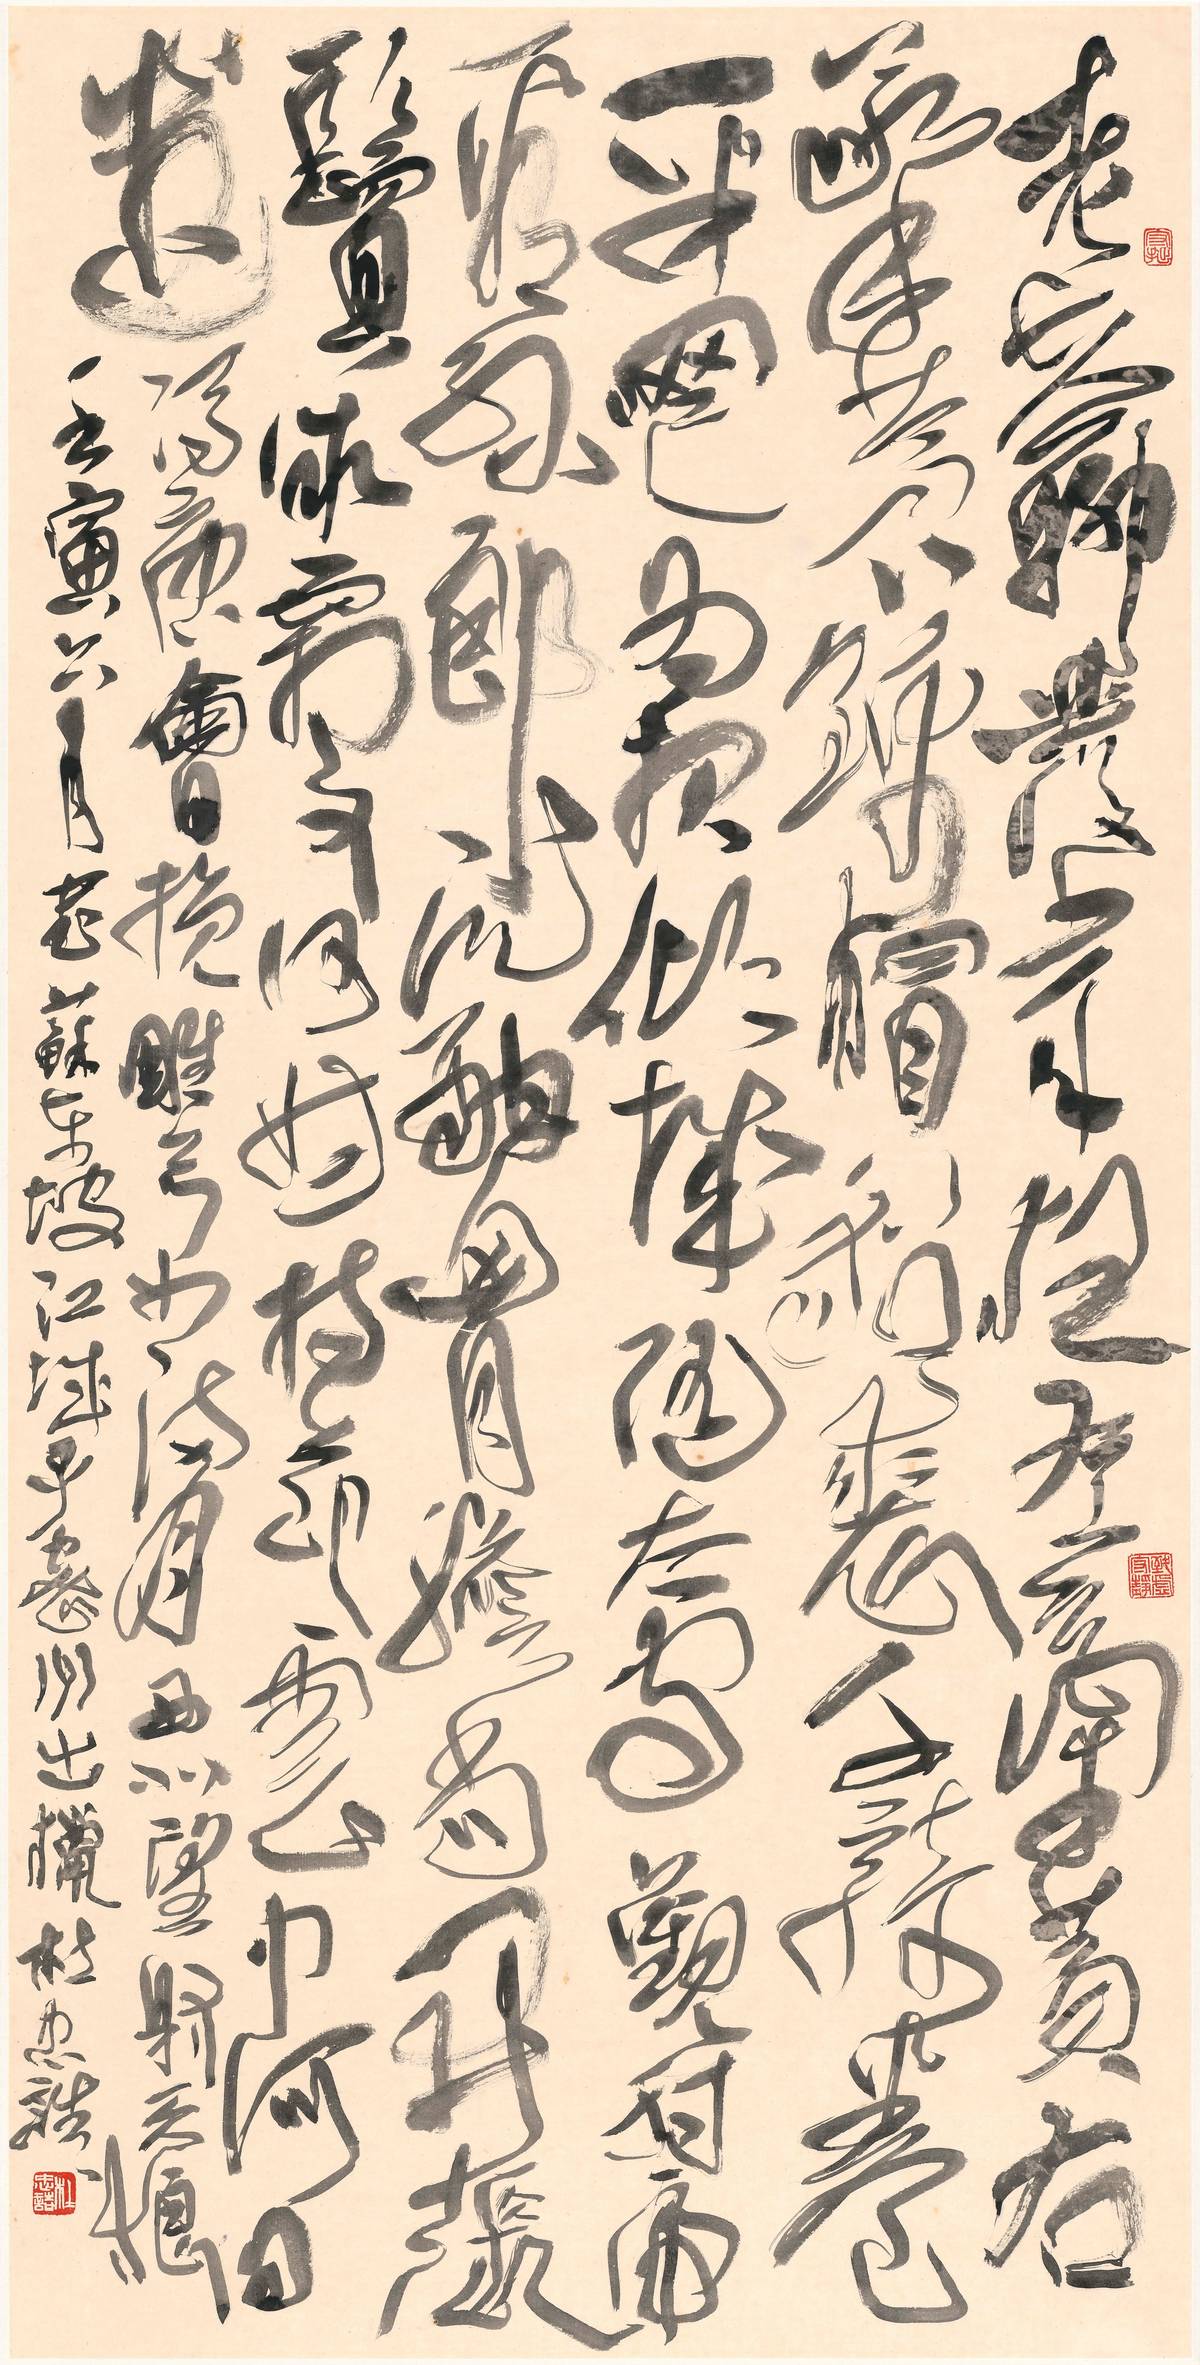 老夫聊發少年狂左牽黃右
擎蒼錦帽貂裘千騎卷
平岡為報傾城隨太守親射虎
看孫郎酒酣胸膽尚開張
鬢微霜又何妨持節雲中何日
遣馮唐會挽雕弓如滿月西北望射天狼
壬寅六月書蘇東坡江城子密州出獵杜忠誥